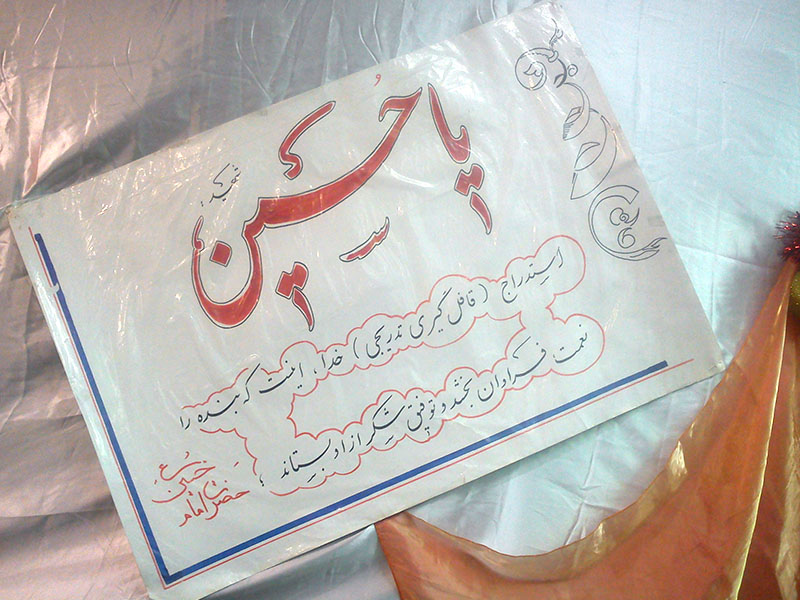 یا حسین
شهید
استدراج (قافل گیری تدریجی) خدا، اینست که بنده را
نعمت فراوان بخشد و توفیق شکر از او بستاند؛
حضرت امام حسین (ع)